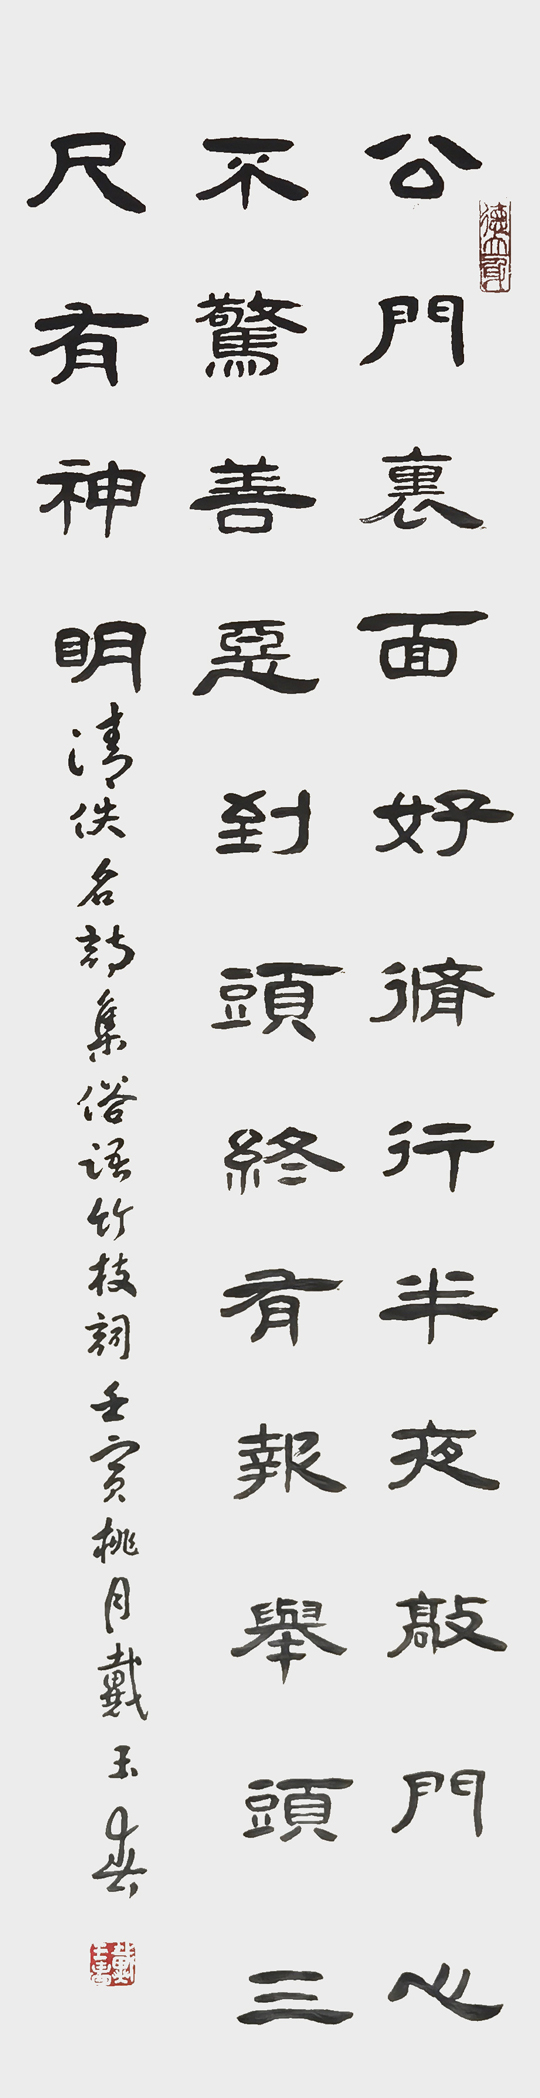 公門裏面好脩行半夜敲門心
不驚善惡到頭終有報舉頭三
尺有神明
清佚名詩集俗语竹枝詞壬寅桃月戴玉春